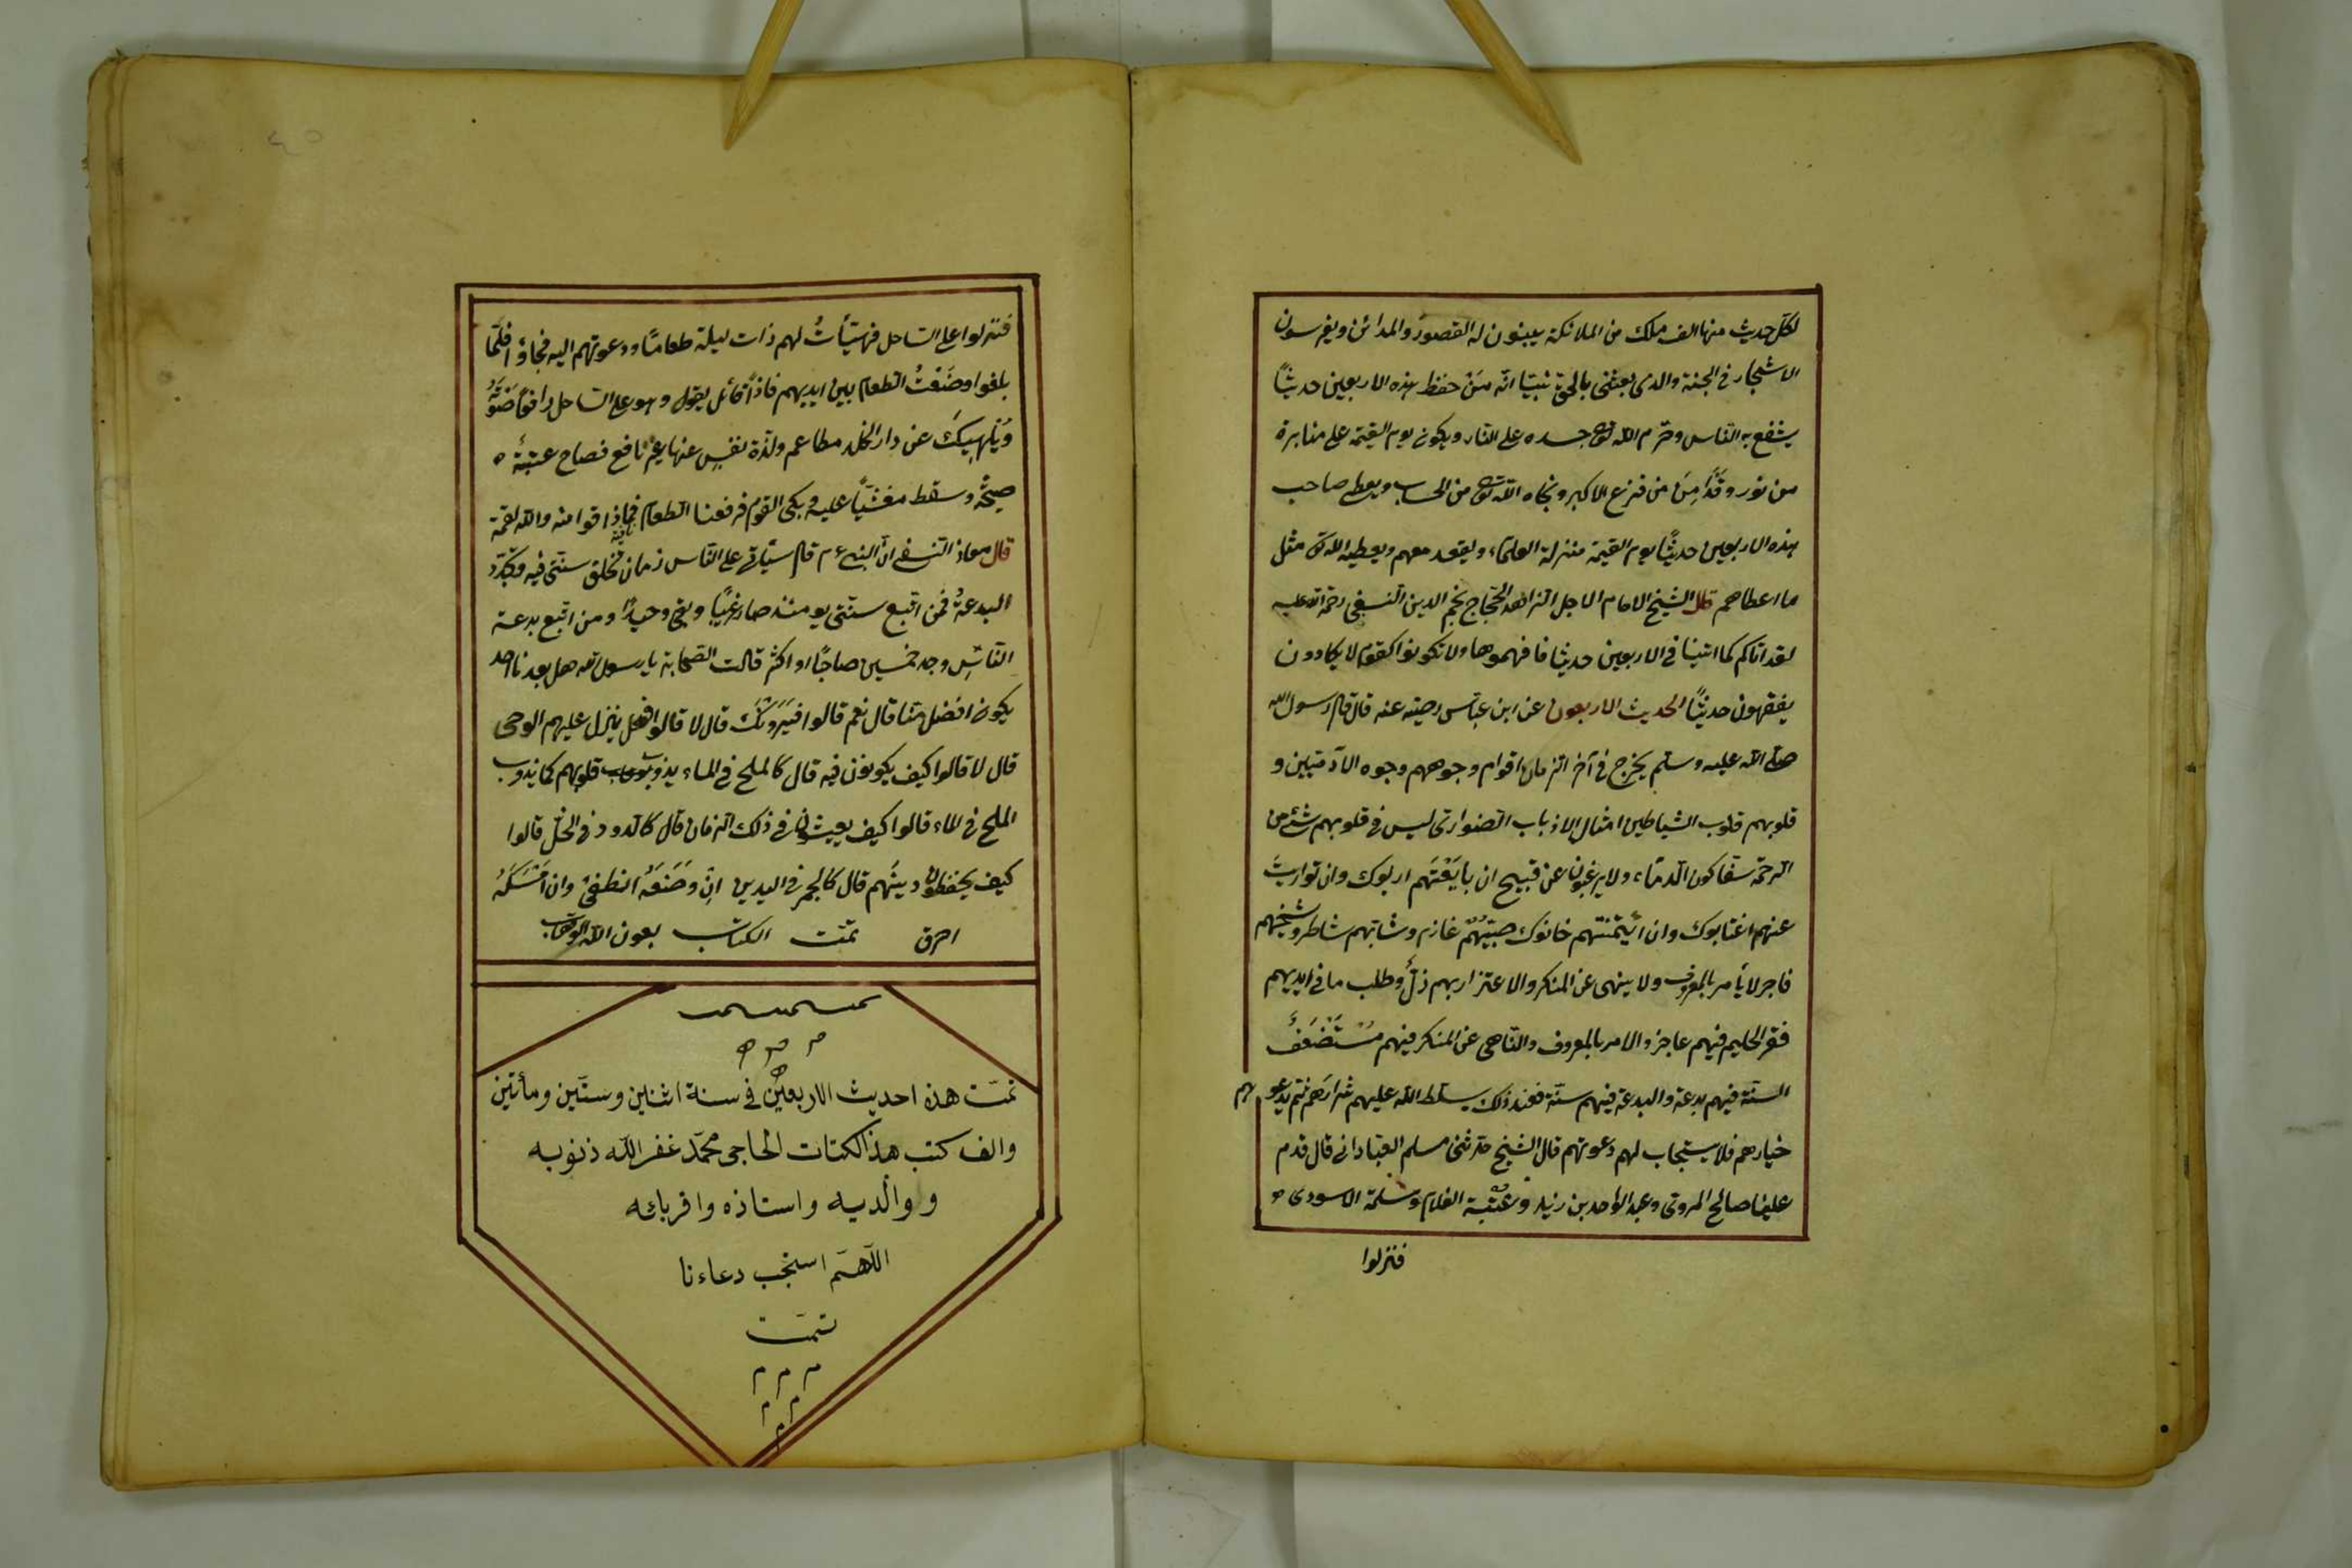 لكل حديث منها الف ملك من الملائكة يبنون له القصور والمدائن ويغرسون
الاشجار في الجنة والذى بعثنى بالحق نبيّا انّه مَنْ حفظ هذه الاربعين حديثاً
يشفع به الناس وحرّم الله تعالى جسده على النار ويكون يوم القيمة على منابرة
من نور وقدامِنَ من فزع الاكبر ونجاه الله تعالى من الحساب ويعطى صاحب
هذه الاربعين حديثًا يوم القيمة منزلة العلماء ويقعد معهم ويعطيه الله تعالى مثل
ما اعطاهم قال الشيخ الامام الاجل الزاهد الحجاج نجم الدين النسفى رحمة الله عليه
لقد اتاكم كما اتينا فى الاربعين حديثا فافهموها ولا تكونوا كقوم لا يكادون
يفقهون حديثًا الحديث الاربعون عن ابن عباس رضيه عنه قال قال رسول الله
صلى الله عليه وسلم يخرج فى آخر الزمان اقوام وجوههم وجوه الآدميين و
قلوبهم قلوب الشياطين امثال الاذباب الضوارى ليس فى قلوبهم شئ من
الرحمة سفاكون الدماء ولا يرغبون عن قبيح ان بايعتهم اربوك وان تواريت
عنهم اغتابوك وان ائتمنتهم خانوك صبيّهم غازم وشابهم شاطر وشيخهم
فاجر لا يأمر بالمعروف ولا ينهى عن المنكر والاعتزار بهم ذلٌ وطلب ما فى ايديهم
فقر الحليم فيهم عاجز والامر بالمعروف والناهى عن المنكر فيهم مُسْتَضْعَفٌ
السنّة فيهم بدعة والبدعة فيهم سنّة فعند ذلك يسلط الله عليهم شرارَهم ثم يدعو
خيارهم فلا يستجاب لهم دعوتهم قال الشيخ حدثنى مسلم العبادانى قال قدم
علينا صالح المروتى وعبد الواحد بن زيد وعتبة الغلام وسلمة الاسودى
فنزلوا
فنزلوا على الساحل فهيّأتُ لهم ذات ليلة طعامًا ودعوتهم اليه فجاؤا فلمّا
بلغوا وضَعْتُ الطعام بين ايديهم فاذاً قائل يقول وهو على الساحل رافعًا صَوتَهُ
وَيُلْهِيكَ عن دار الخلد مطاعم ولذة نفس عنها غير نافع فصاح عتبة
صيحة وسقط مغشيّاً عليه وبكى القوم فرفعنا الطعام فماذاقوا منه والله لقمة
قال معاذ النسفى انّ النبىءم قال سيّأتى على النّاس زمان تخلق سنّتى فيه وتجدّد
البدعةُ فمن اتّبع سنّتى يومئذ صار غريبًا وبقى وحيدًا ومن اتّبع بدعة
الناسِ وجد خمسين صاحبًا او اكثر قالت الصحابة يا رسول الله هل بعدنا احد
يكون افضل منّا قال نعم قالوا افيَرَوْنَكَ قال لا قالوا افهل ينزل عليهم الوحى
قال لا قالوا كيف يكونون فيه قال كالملح فى الماء يذوب قلوبهم كما يذوب
الملح فى الماء قالوا كيف يعيشون فى ذلك الزمان قال كالدود فى الخلّ قالوا
كيف يحفظون دينَهم قال كالجمر فى اليدين انِ وضَعَهُ انطفئ وان اَمْسَكَهُ
احرق تمّت الكتاب بعون الله الوهاب
تمّت هذه احديث الاربعين فى سنة اثنين وستّين ومأتين
والف كتب هذا لكتات الحاجى محمّد غفر الله ذنوبه
و والديه واستاذه واقربائه
اللّهمّ استجب دعاءنا
تمّت